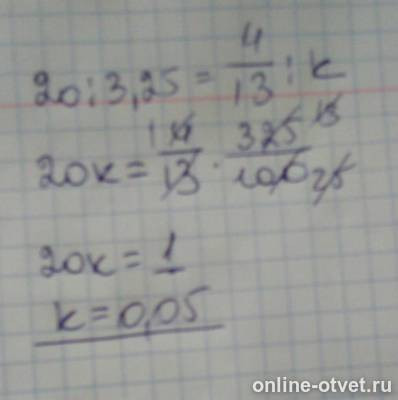 20 : 3,25 = 4/13 : k
20k = 1 4/13 · 325 13/100 25
20k = 1
k = 0,05
online-otvet.ru